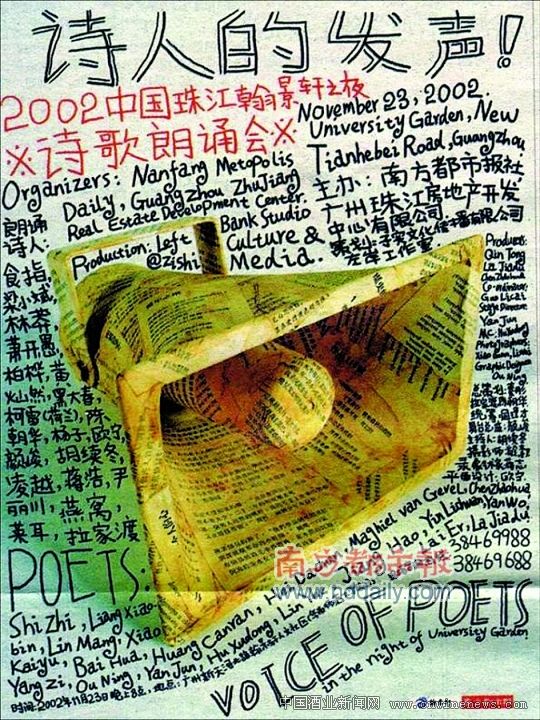 诗人的发声!
2002中国珠江翰景轩之夜
※诗歌朗诵会※
November 23, 2002.
University Garden, New
Tianhebei Road, Guangzhou
Organizers: Nanfang Metopolis
Daily, Guangzhou ZhuJiang
Real Estate Development Center.
Production: Left Bank Studio
@zishi Culture &
Media.
主办:南方都市报社
广州珠江房地产开发
中心有限公司
左岸工作室
朗诵
诗人:
食指,
梁小斌,
林莽,
萧开愚,
柏桦,黄
灿然,黑大春,
柯雷(荷兰),陈
朝华,杨子,欧宁,
颜峻,胡续冬,
凌越,蒋浩,尹
丽川,燕窝,
莱耳,拉家渡
Producer:
Qin Tong
La Jiadu
Chen Zhaohua
Guo Licai
Stage Director:
Yan Jun
MC: Hu Xudong
Photographers:
Graphic Design
Ou Ning
平面设计:欧宁
POETS:
Shi Zhi, Liang Xiao-
bin, Lin Mang, Xiao
Kaiyu, Bai Hua, Huang Canran, Hei Dachun, Maghiel van Crevel, Chen Zhaohua
Yang Zi, Ou Ning, Yan Jun, Hu Xudong, Lin Yue, Jiang Hao, Yin Lichuan, Yan Wo,
Lai Er, La Jiadu
58469988
38469688
南方都市报
www.nddaily.com
VOICE OF POETS
in the night of University Garden
时间:2002年11月23日晚上8点,地点:广州
中国酒业新闻网
www.cnwinenews.com